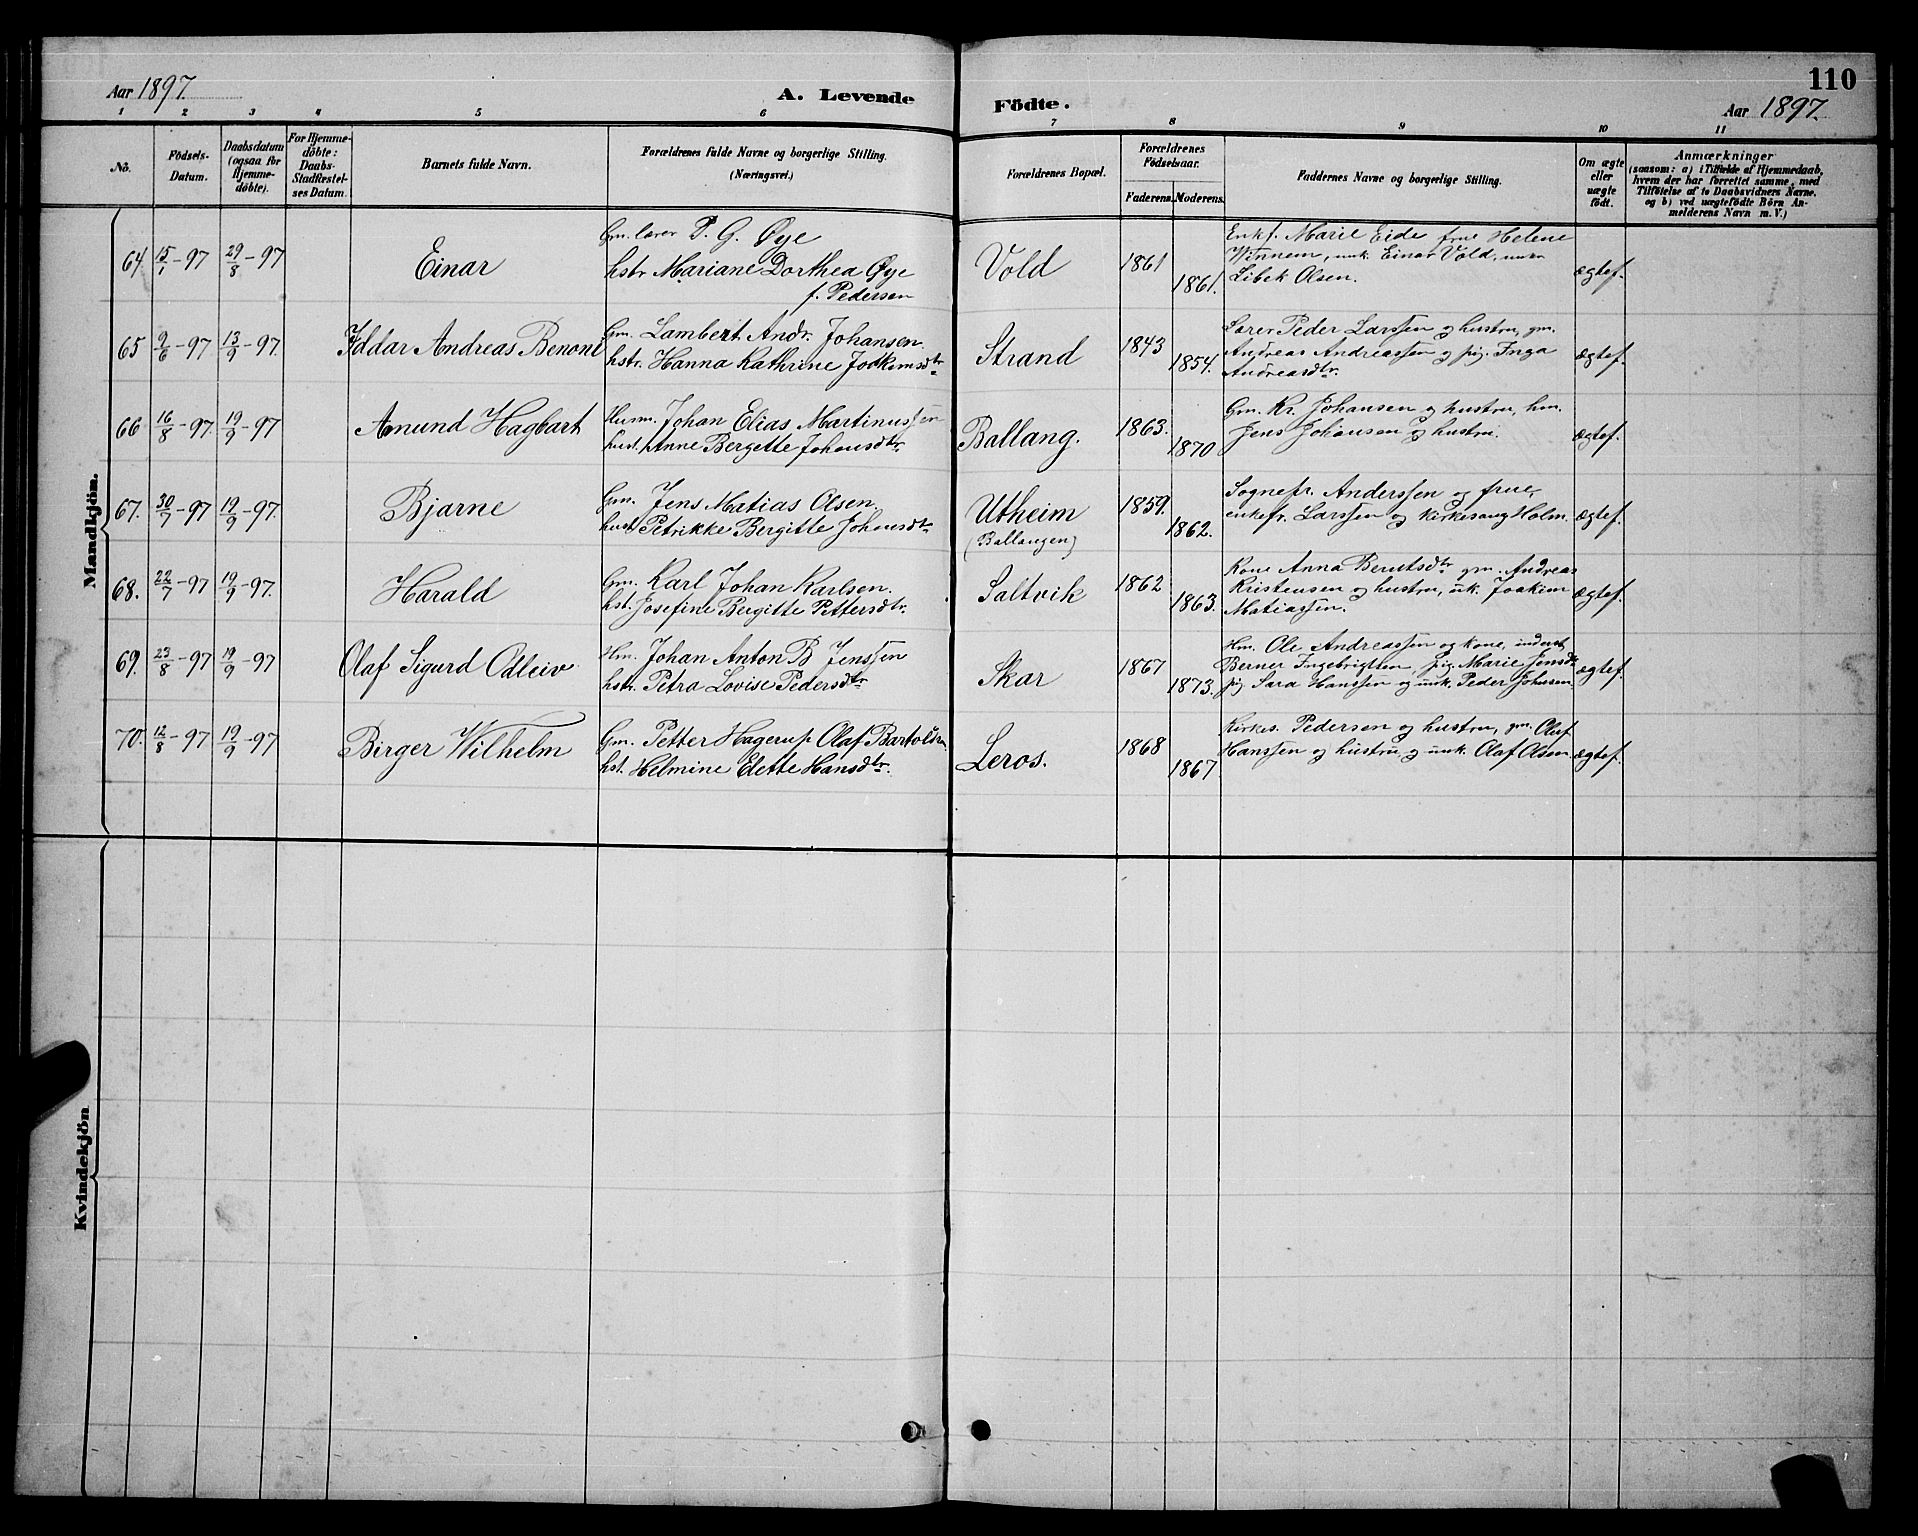 Aar 1897.
A. Levende
Födte.
110
Aar 1897.
1 2 3 4 5 6 7 8 9 10 11
No.
Födsels-
Datum.
Daabsdatum
(ogsaa for
Hjemme-
döbte).
For Hjemme-
döbte:
Daabs-
Stadfæstel-
ses Datum.
Barnets fulde Navn.
Forældrenes fulde Navne og borgerlige Stilling.
(Næringsvei.)
Forældrenes Bopæl.
Forældrenes
Födselsaar.
Faderens. Moderens.
Faddernes Navne og borgerlige Stilling.
Om ægte
eller
uægte
födt.
Anmærkninger
(saasom: a) i Tilfælde af Hjemmedaab,
hvem der har forrettet samme, med
Tilföielse af to Daabsvidners Navne.
og b) ved uægtefödte Börn An-
melderens Navn m. V.)
Mandkjön.
64 15/1-97 29/8-97 Einar
Gm. lærer P. G. Øye
hstr Mariane Dorthea Øye
f. Pedersen
Vold 1861 1861.
Enkf. Marie Eide frue Helene
Winnem, unk. Einar Vold,
Libek Olsen.
ægtef.
65 9/6-97 13/9-97. Iddar Andreas Benoni
Gm. Lambert Andr. Johansen
hstr. Hanna Kathrine Joakimsdtr
Strand 1843 1854.
Lærer Peder Larssen og hustru, gm.
Andreas Andreassen og pig. Inga
Andreasdtr.
ægtef.
66 16/8-97. 19/9-97 Amund Hagbart
Husm. Johan Elias Martinussen
hust. Anne Bergette Johansdtr
Ballang. 1863. 1870
Gm. Kr. Johansen og hustru, hm.
Jens Johansen og hustru.
ægtef.
67. 30/7-97 19/9-97. Bjarne
Gm. Jens Matias Olsen
hust Petrikke Bergitte Johansdtr
Utheim
(Ballangen)
1859. 1862.
Sognepr. Anderssen og frue,
enkefr. Larssen og kirkesang Holm.
ægtef.
68. 22/7-97 19/9-97. Harald
Gm. Karl Johan Karlsen.
hst. Josefine Bergitte Pettersdtr.
Saltvik 1862 1863.
Kone Anna Berntsdtr gm. Andreas
Kristensen og hustru, uk. Joakim
Matiassen.
ægtef.
69. 23/8-97 19/9-97 Olaf Sigurd Odleiv
Hm. Johan Anton B Jenssen
hstr. Petra Lovise Pedersdtr
Skar 1867 1873.
Hm. Ole Andreassen og kone, inderst
Berner Ingebrigtsen, pig. Marie Jensdtr
pig Sara Hanssen og unk. Peder Johnsen.
ægtef.
70. 12/8-97 19/9-97 Birger Wilhelm
Gm. Petter Hagerup Olaf Bartolsen
hst. Helmine Elette Hansdtr.
Leros. 1868 1867.
Kirkes. Pedersen og hustru, gm. Oluf
Hanssen og hustru, og unk. Olaf Olsen
ægtef.
Kvindekjön